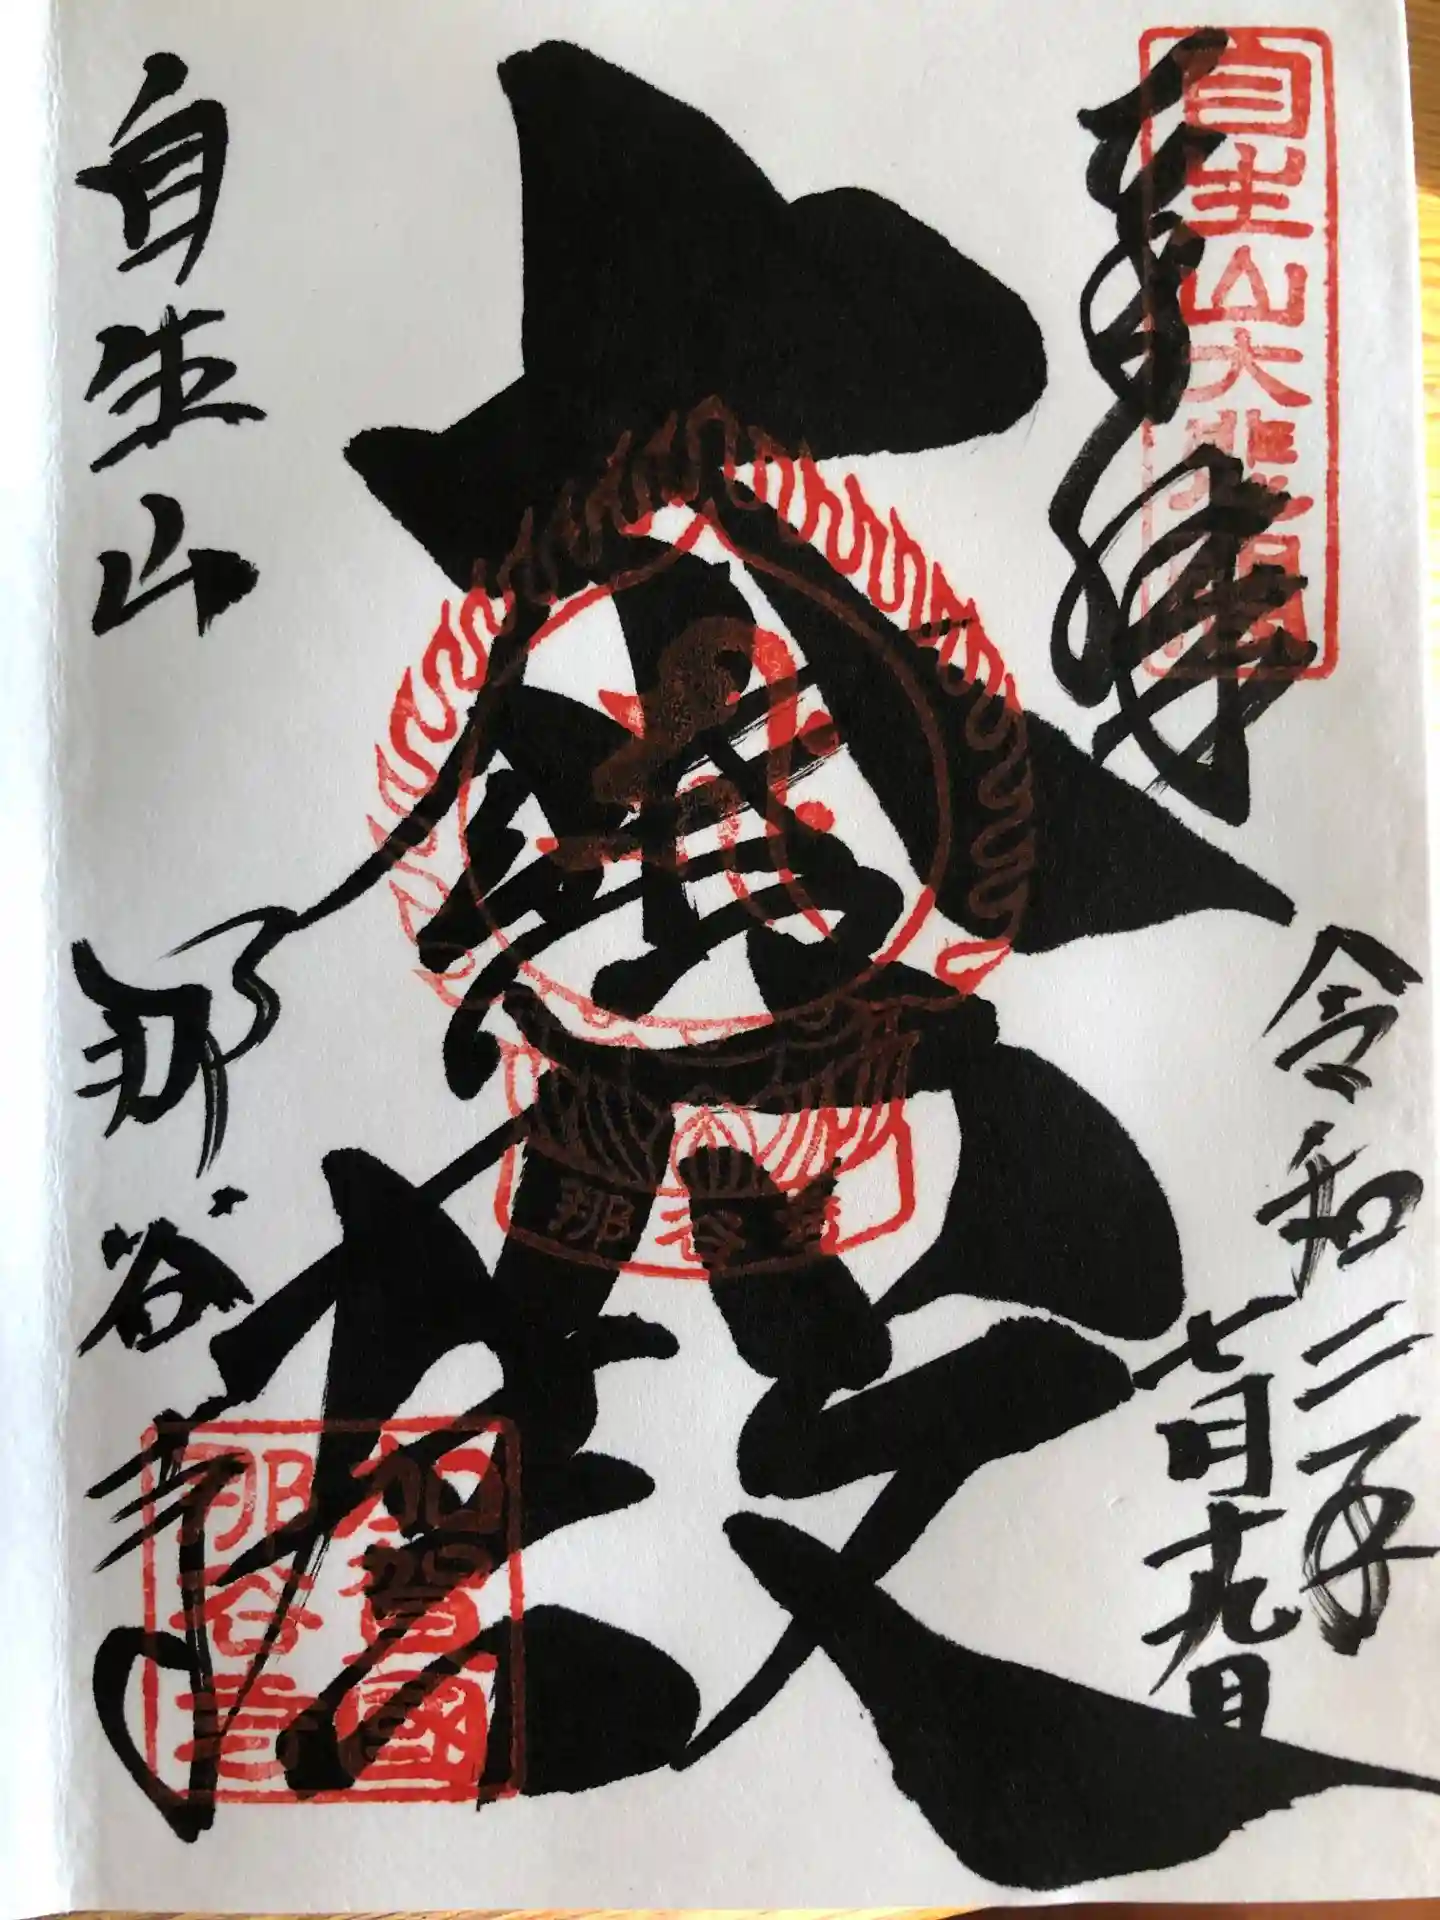 自生山大悲閣
奉拝
令和二年
七月十九日
大悲殿
那谷寺
自生山
那谷寺
加賀國
那谷寺